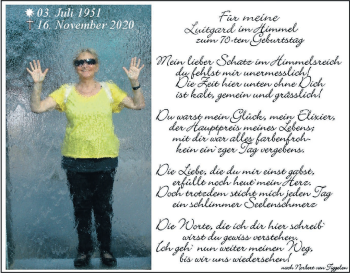 03. Juli 1951
16. November 2020
Für meine
Luitgard im Himmel
zum 70-ten Geburtstag
Mein lieber Schatz im Himmelsreich
du fehlst mir unermesslich!
Die Zeit hier unten ohne Dich
ist kalt, gemein und grässlich!
Du warst mein Glück, mein Elixier,
der Hauptpreis meines Lebens;
mit dir war alles farbenfroh-
kein ein'zger Tag vergebens.
Die Liebe, die du mir einst gabst,
erfüllt noch heut' mein Herz.
Doch trotzdem sticht mich jeden Tag
ein schlimmer Seelenschmerz
Die Worte, die ich dir hier schreib'
wirst du gewiss verstehen.
Ich geh' nun weiter meinen Weg,
bis wir uns wiedersehen!
nach Norbert van Tiggelen